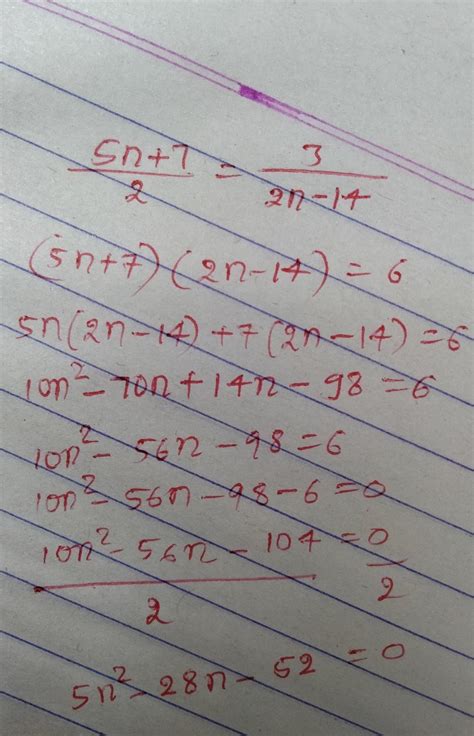 (5n+7)/2 = 3/(2n-14)
(5n+7)(2n-14) = 6
5n(2n-14)+7(2n-14)=6
10n²-70n+14n-98=6
10n²-56n-98=6
10n²-56n-98-6=0
(10n²-56n-104)/2 = 0/2
5n²-28n-52=0